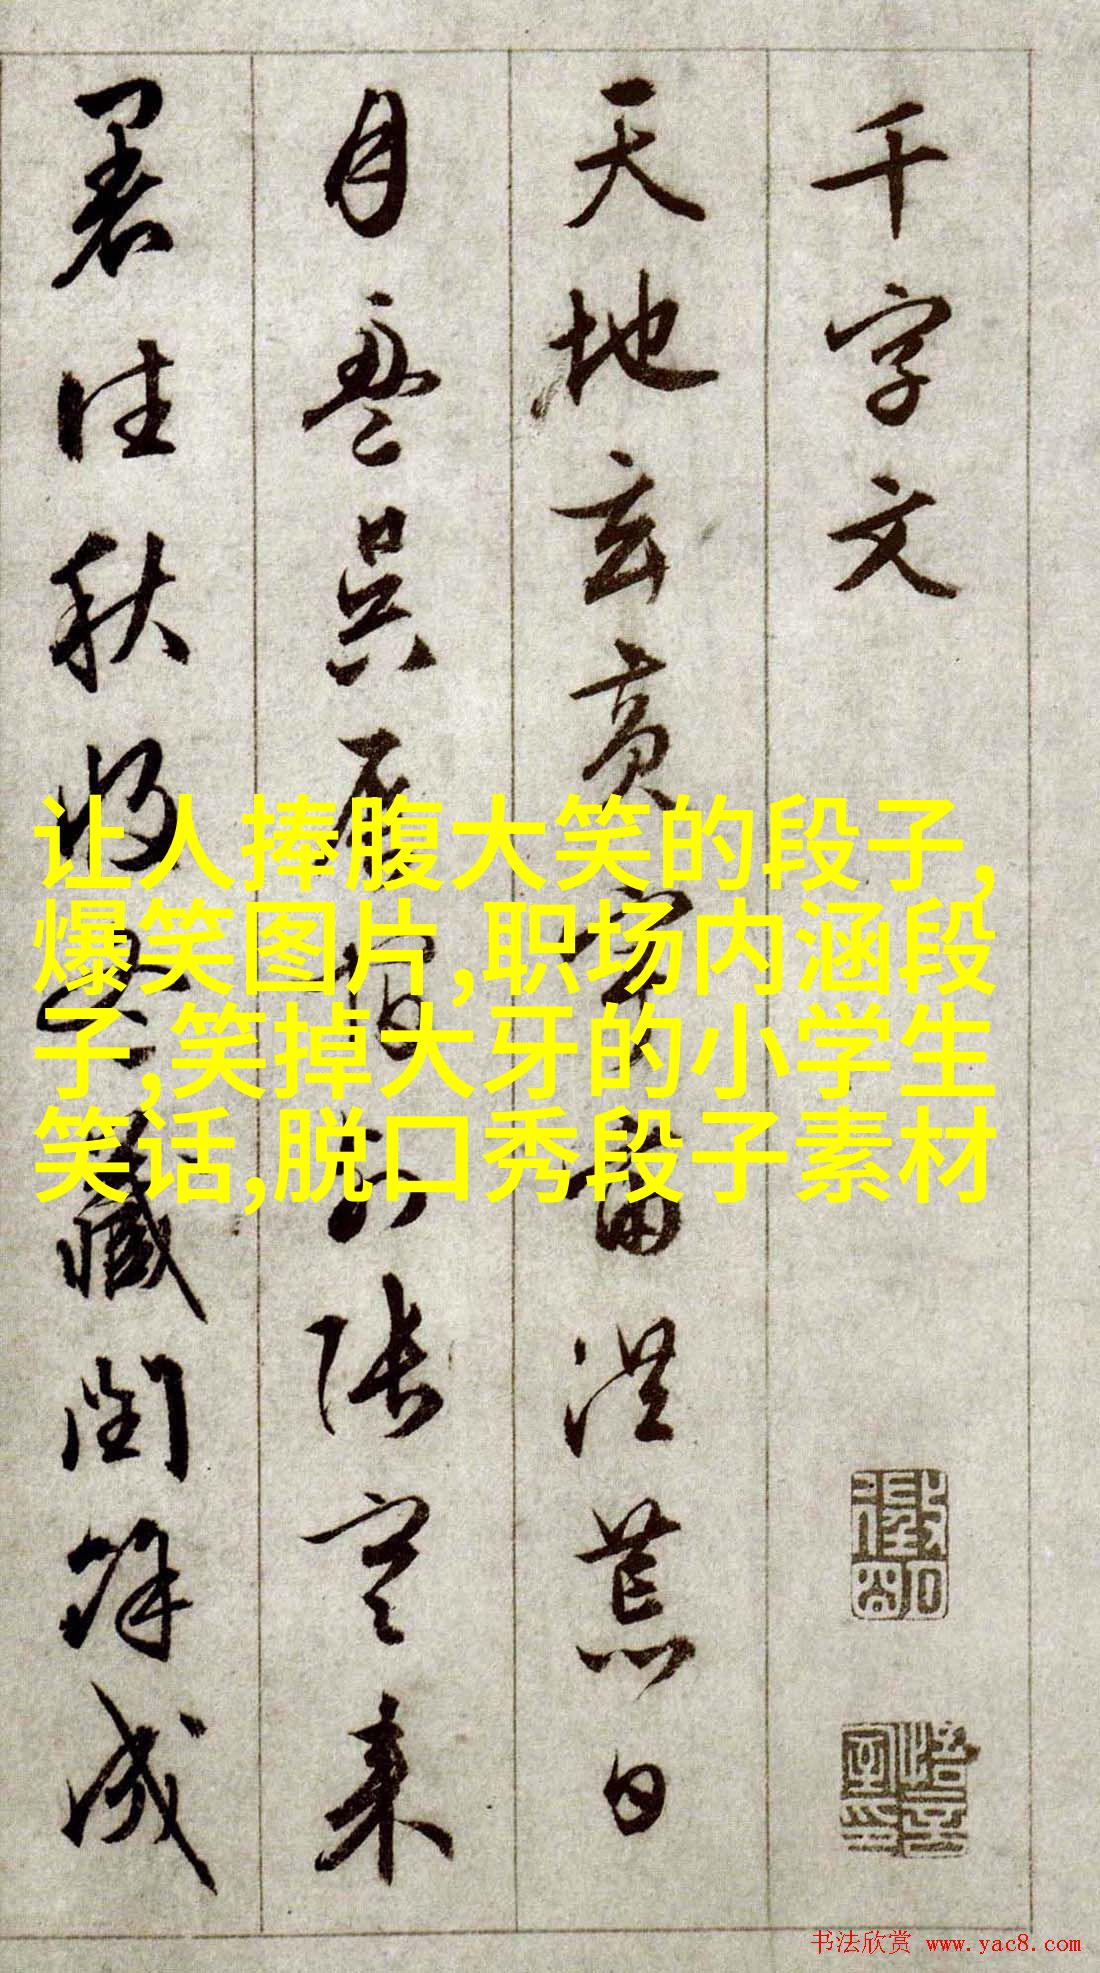 千字文
天地玄黄宇宙洪荒日
月盈昃辰宿列张寒来
暑往秋收冬藏闰余成
让人捧腹大笑的段子,
爆笑图片,职场内涵段
子,笑掉大牙的小学生
笑话,脱口秀段子素材
书法欣赏 www.yac8.com